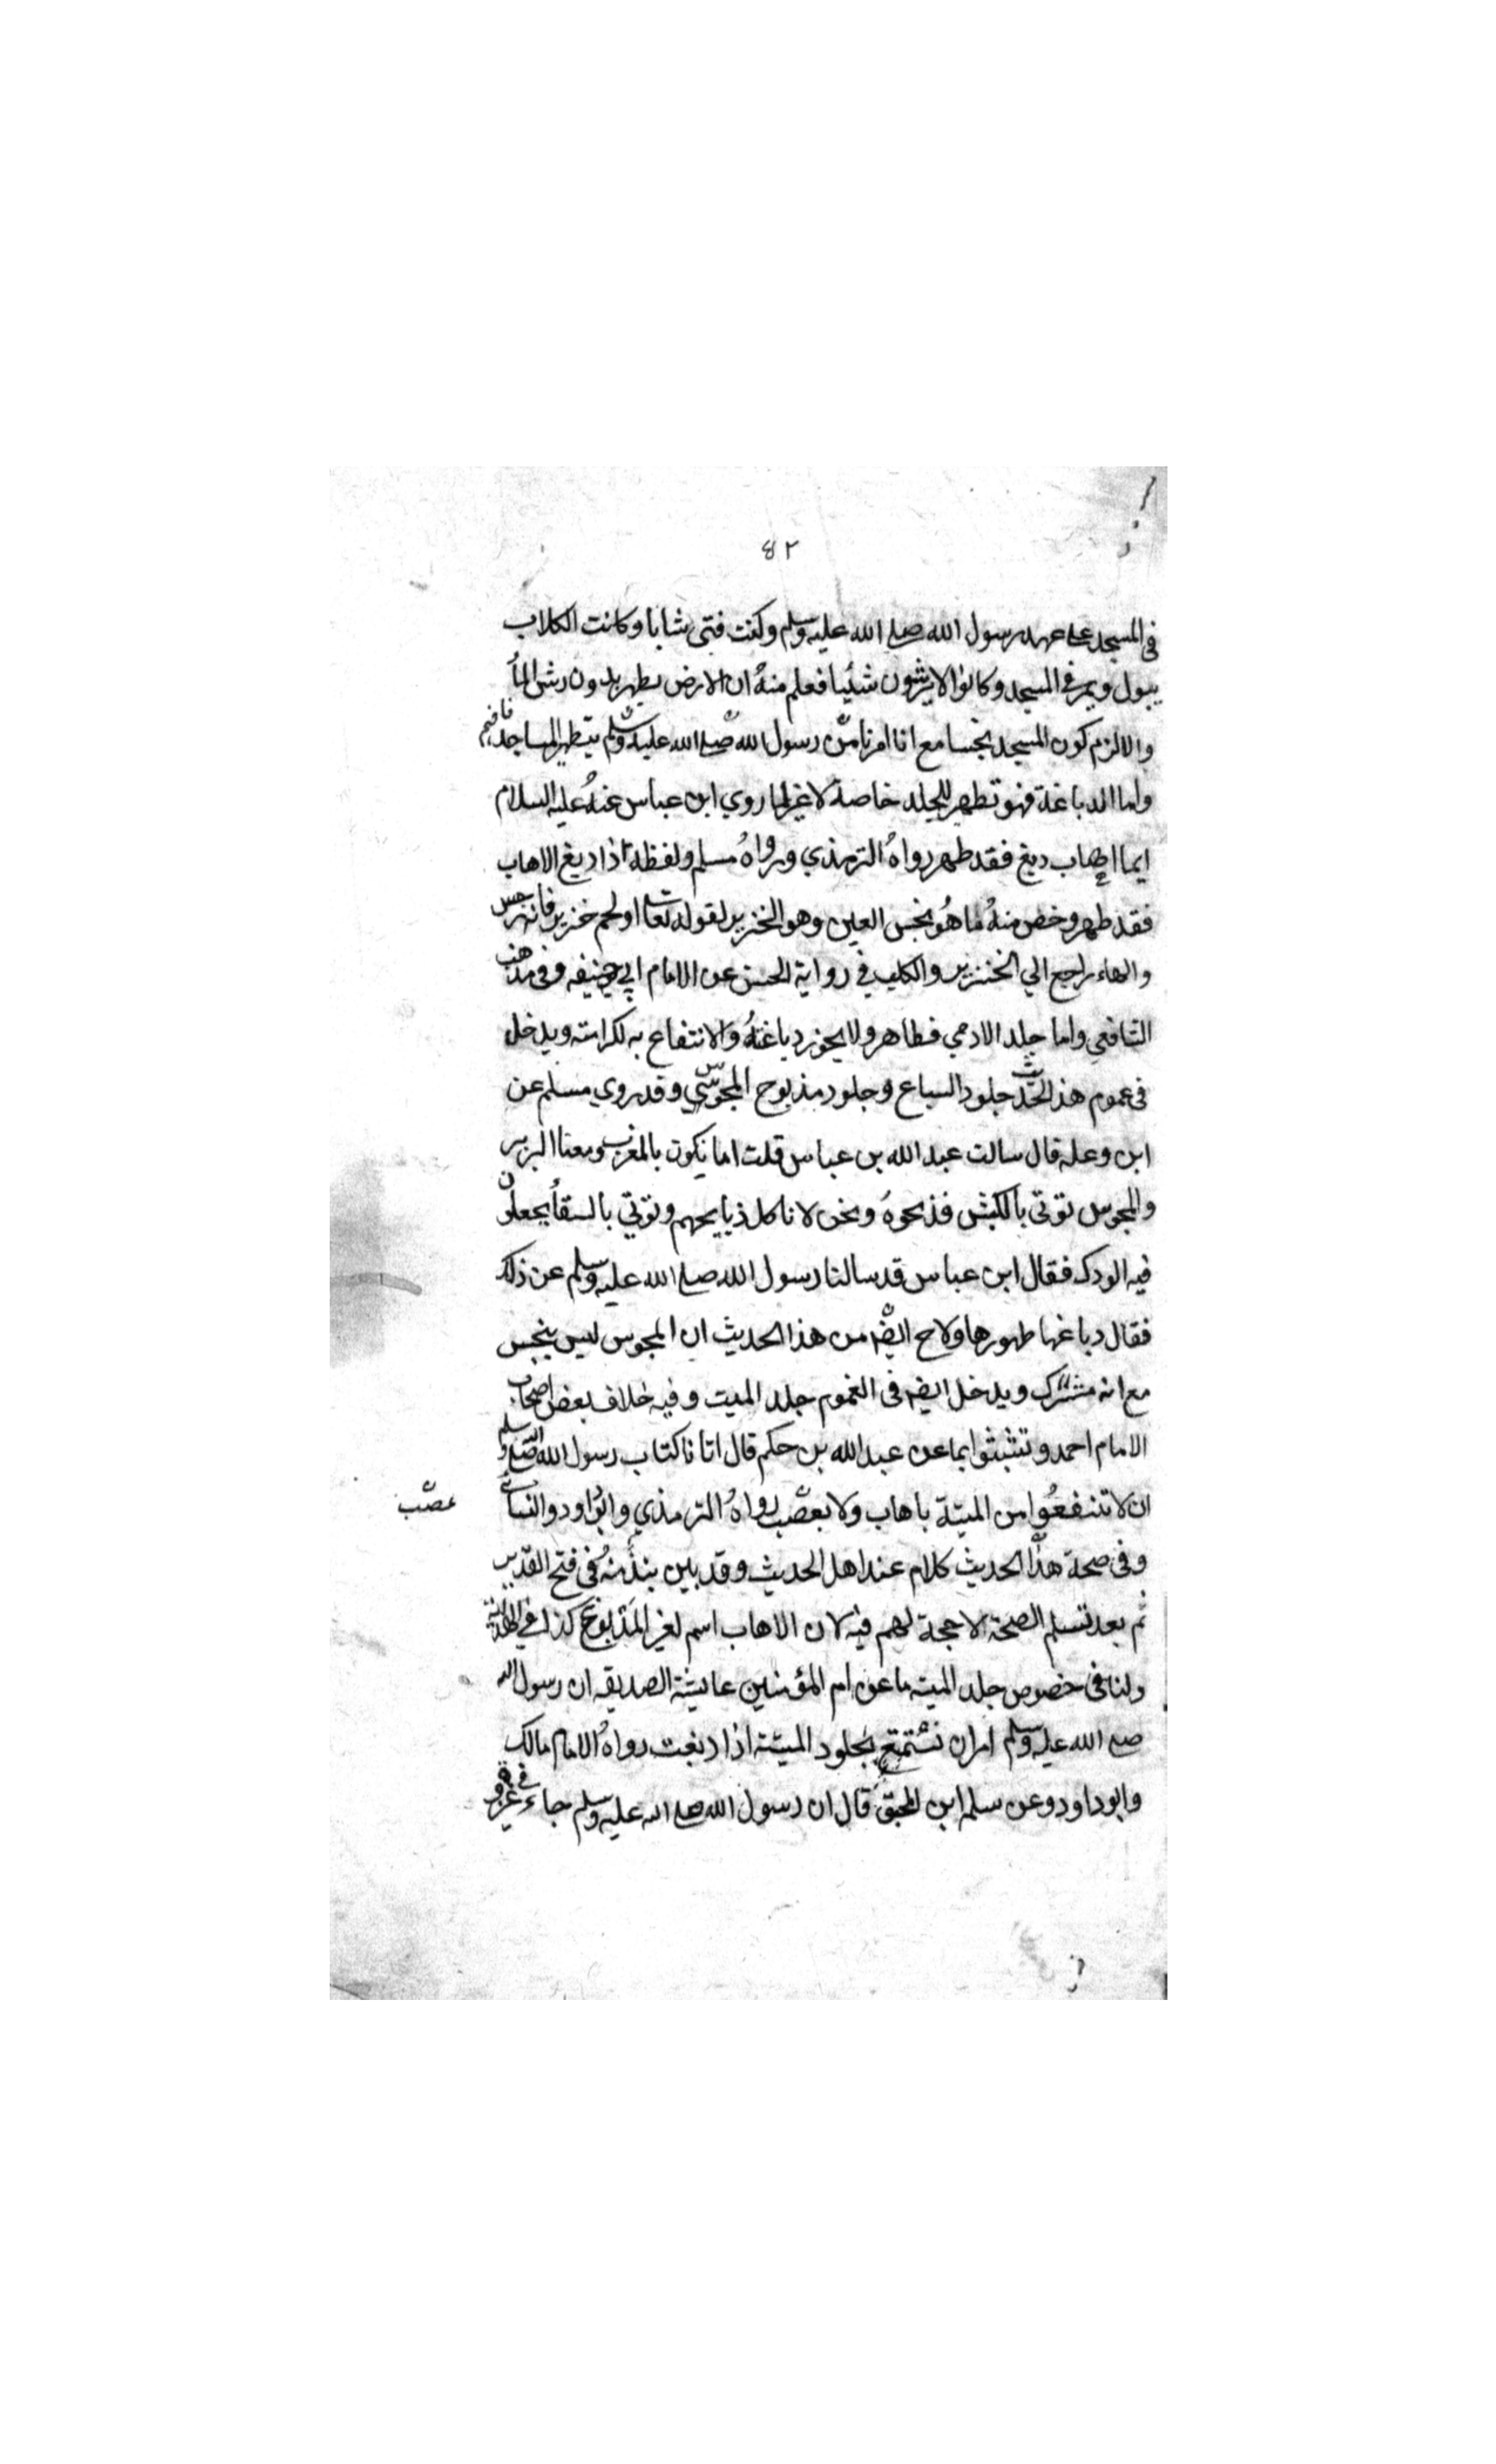 ٤٢
في المسجد على عهد رسول الله صلى الله عليه وسلم وكنت فتى شابا وكانت الكلاب
يبول ويمر في المسجد وكانوا لا يرشون شيئا فعلم منه ان الارض يطهر بدون رش الماء
والا لزم كون المسجد نجسا مع انا امرنا من رسول الله صلى الله عليه وسلم بتطهير المساجد فافهم
واما الدباغة فهو تطهر للجلد خاصة لا غير لما روي ابن عباس عنه عليه السلام
ايما اهاب دبغ فقد طهر رواه الترمذي ورواه مسلم ولفظه اذا دبغ الاهاب
فقد طهر وخص منه ما هو نجس العين وهو الخنزير لقوله تعا او لحم خنزير فانه رجس
والهاء راجع الي الخنزير والكلب في رواية الحسن عن الامام ابي حنيفه وفي مذهب
الشافعي واما جلد الادمي فطاهر ولا يجوز دباغته والانتفاع به لكرامته ويدخل
في عموم هذا الحديث جلود السباع وجلود مذبوح المجوسي وقد روي مسلم عن
ابن وعله قال سالت عبد الله بن عباس قلت اما نكون بالمغرب ومعنا البربر
والمجوس نوتي بالكبش فذبحوه ونحن لا ناكل ذبايحهم ونوتي بالسقاء يجعلون
فيه الودك فقال ابن عباس قد سالنا رسول الله صلى الله عليه وسلم عن ذلك
فقال دباغها طهورها ولاح ايضه من هذا الحديث ان المجوس ليس بنجس
مع انه مشرك ويدخل ايضه في العموم جلد الميت وفيه خلاف بعض اصحاب
الامام احمد وتشبثوا بما عن عبد الله بن حكم قال اتانا كتاب رسول الله صلى الله وسلم
ان لا تنفعوا من الميتة باهاب ولا بعصب رواه الترمذي وابو داود والنسائي
عصب
وفي صحة هذا الحديث كلام عند اهل الحديث وقد بين نبذ منه في فتح القدير
ثم بعد تسلم الصحة لا حجة لهم فيه لان الاهاب اسم لغير المدبوغ كذا في الهداية
ولنا في خصوص جلد الميته ما عن ام المؤمنين عايشة الصديقه ان رسول الله
صلى الله عليه وسلم امر ان نستمتع بجلود الميتة اذا دبغت رواه الامام مالك
وابو داود وعن سلمه ابن المحبق قال ان رسول الله صلى الله عليه وسلم جاء في غزوة